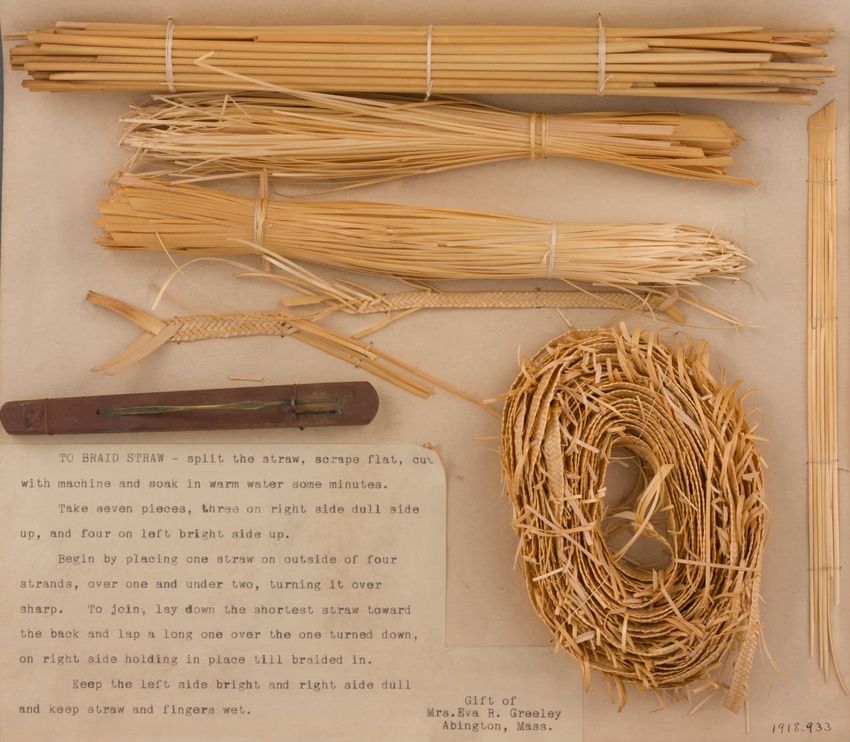 TO BRAID STRAW - split the straw, scrape flat, cut
with machine and soak in warm water some minutes.
Take seven pieces, three on right side dull side
up, and four on left bright side up.
Begin by placing one straw on outside of four
strands, over one and under two, turning it over
sharp. To join, lay down the shortest straw toward
the back and lap a long one over the one turned down,
on right side holding in place till braided in.
Keep the left side bright and right side dull
and keep straw and fingers wet.
Gift of
Mrs.Eva R. Greeley
Abington, Mass.
1918.933